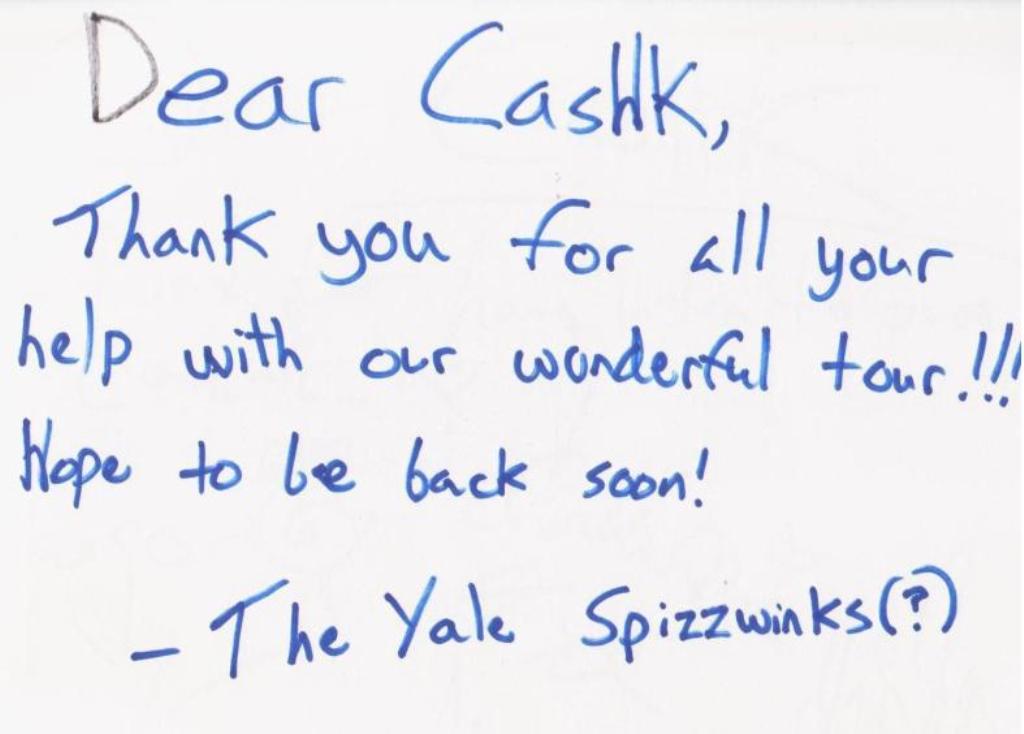 Dear Cashk,
Thank you for all your
help with our wonderful tour!!!
Hope to be back soon!
- The Yale Spizzwinks(?)